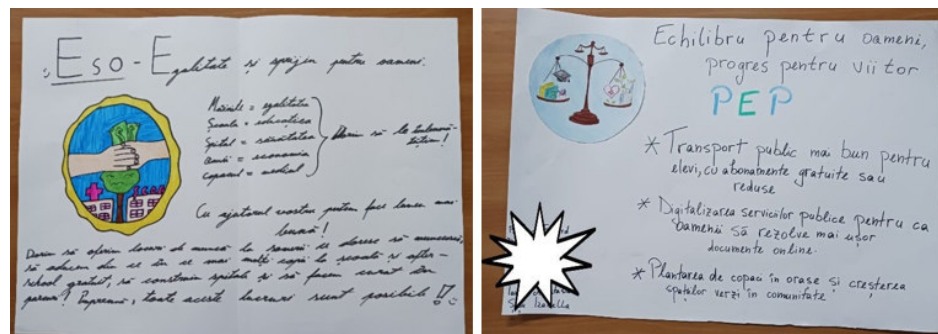 „Eso - Egalitate și sprijin pentru oameni.
Mâinile = egalitatea
Școala = educația
Spital = sănătatea
= economia
copacul = mediul
Vrem să le
Cu ajutorul vostru putem face lumea mai
bună!
Dorim să oferim locuri de muncă la oameni ce doresc să muncească,
să aducem din ce în ce mai mulți copii la școală și after-
school gratuit, să construim spitale și să facem curat în
parcuri! Împreună, toate aceste lucruri sunt posibile!
Echilibru pentru oameni,
progres pentru viitor
PEP
* Transport public mai bun pentru
elevi, cu abonamente gratuite sau
reduse
* Digitalizarea serviciilor publice pentru ca
oamenii să rezolve mai ușor
documente online.
* Plantarea de copaci în orașe și creșterea
spațiilor verzi în comunitate